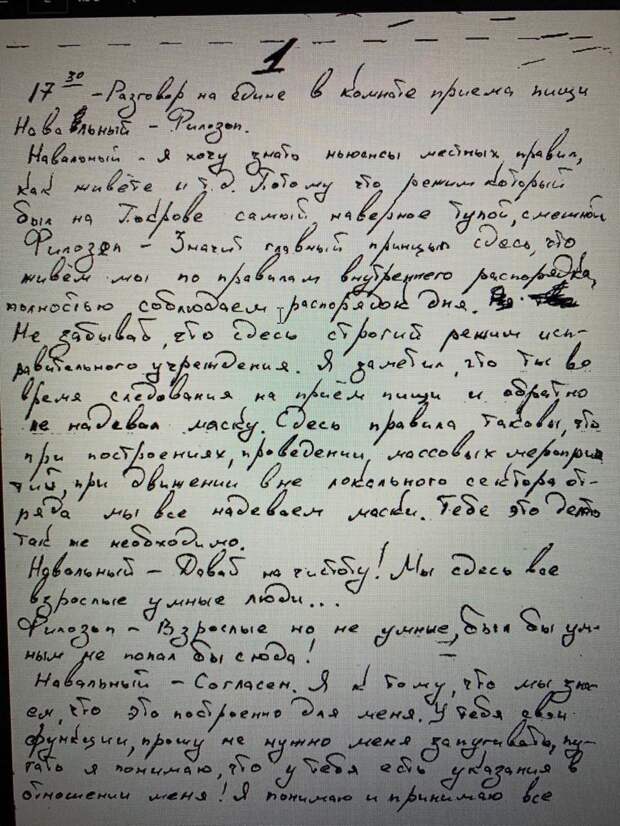 1
17 30 – Разговор на едине в комнате приема пищи
Навальный – Филозоп.
Навальный – я хочу знать ньюансы местных правил,
как живёте и т.д. Потому что режим который
был на Покрове самый, наверное тупой, смешной
Филозоп – Значит главный принцып сдесь, что
живем мы по правилам внутреннего распорядка,
полностью соблюдаем распорядок дня.
Не забывай, что сдесь строгий режим исп-
равительного учреждения. Я заметил, что ты во
время следования на приём пищи и обратно
не надевал маску. Сдесь правила таковы, что
при построениях, проведении, массовых мероприя
тий, при движении вне локального сектора от-
ряда мы все надеваем маски. Тебе это делать
так же необходимо.
Навальный – Давай на чистоту! Мы сдесь все
взрослые умные люди...
Филозоп – Взрослые но не умные, был бы ум-
ным не попал бы сюда!
Навальный – Согласен. Я к тому, что мы зна-
ем, что это построенно для меня. У тебя свои
функции, прошу не нужно меня запугивать, пу-
гать я понимаю, что у тебя есть указания в
отношении меня! Я понимаю и принимаю все